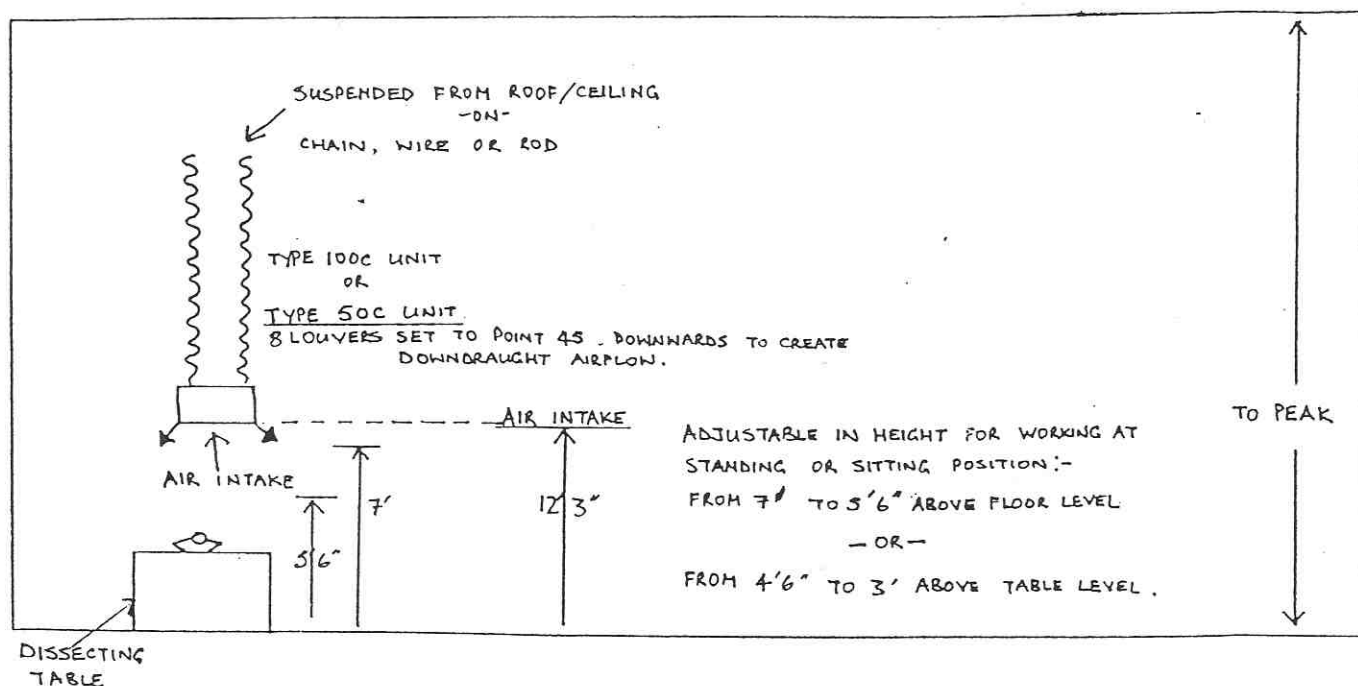 SUSPENDED FROM ROOF/CEILING
-ON-
CHAIN, WIRE OR ROD
TYPE 100C UNIT
OR
TYPE 50C UNIT.
8 LOUVERS SET TO POINT 45. DOWNWARDS TO CREATE
DOWNDRAUGHT AIRFLOW.
AIR INTAKE
AIR INTAKE
7'
5'6"
12'3"
ADJUSTABLE IN HEIGHT FOR WORKING AT
STANDING OR SITTING POSITION:-
FROM 7' TO 5'6" ABOVE FLOOR LEVEL
—OR—
FROM 4'6" TO 3' ABOVE TABLE LEVEL.
TO PEAK
DISSECTING
TABLE